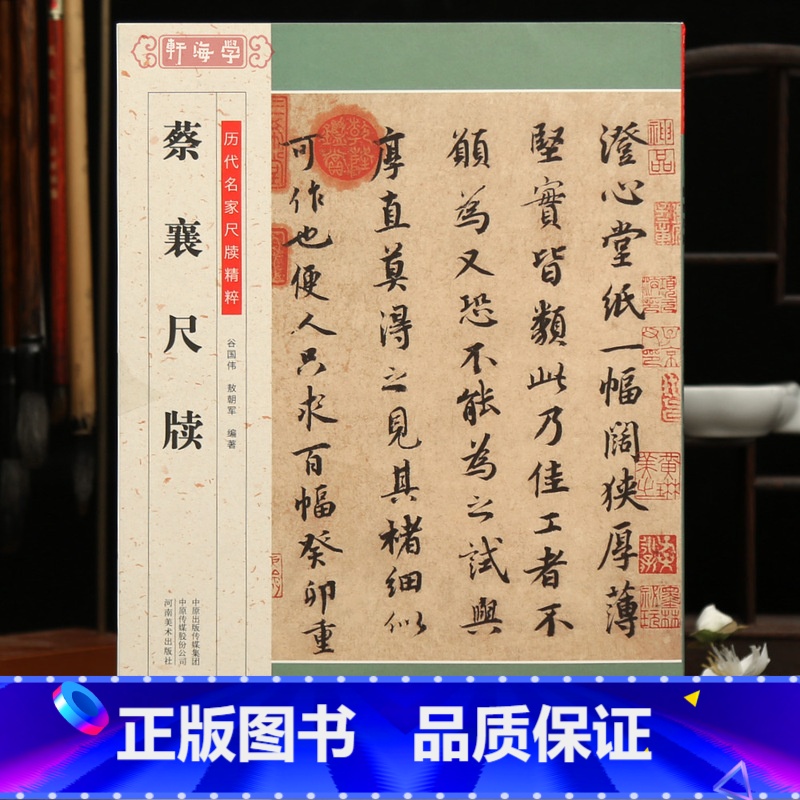 学海轩
蔡襄尺牍
历代名家尺牍精粹
谷国伟 敖朝军 编著
中原出版传媒集团
中原传媒股份公司
河南美术出版社
澄心堂纸一幅闊狹厚薄
堅實皆類此乃佳工者不
願為又恐不能為之試與
厚直莫得之見其楮細似
可作也便人只求百幅癸卯重
神品
正版图书 品质保证